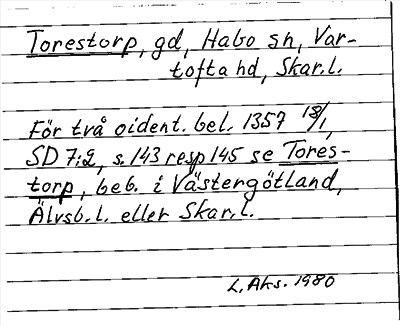 Torestorp, gd, Habo sn, Var-
tofta hd, Skar.l.
För två oident. bel. 1357 18/1,
SD 7:2, s. 143 resp 145 se Tores-
torp, beb. i Västergötland,
Älvsb.l. eller Skar.l.
L. Aks. 1980